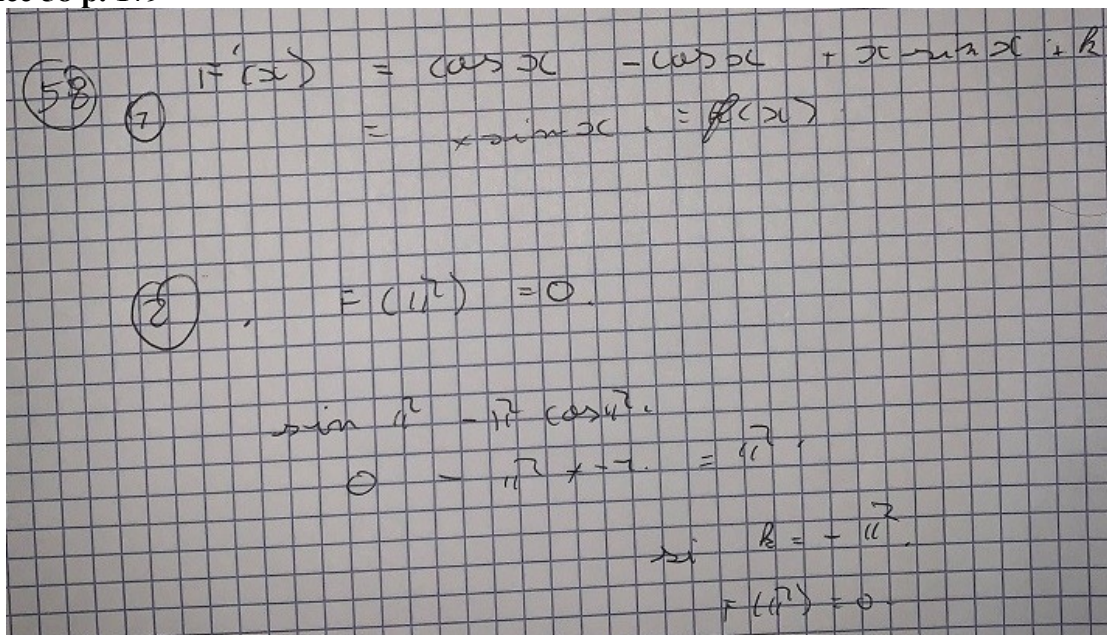 58 1 F'(x) = cos x - cos x + x sin x + k
= x sin x = f(x)
2 F(π) = 0.
sin π - π cos π.
0 - π × -1. = π.
si k = - π.
F(π) = 0